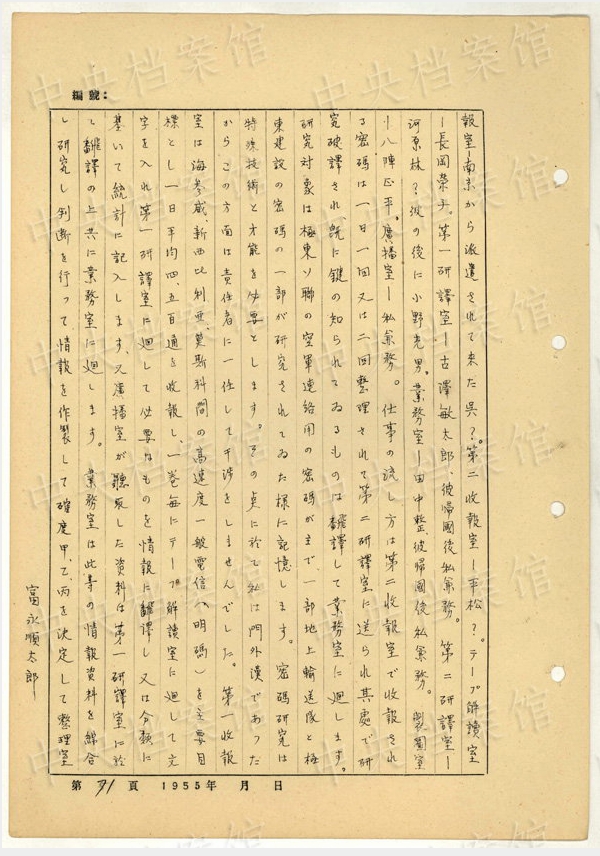 編號：
報室ー南京から派遣されて来た呉？。第二收報室ー平松？。テープ解讀室
ー長岡榮子。第一研譯室ー古澤敏太郎、彼帰國後私兼務。第二研譯室ー
河原林？彼の後に小野光男。業務室ー田中整、彼帰國後私兼務。製圖室
ー八陣正平。廣播室ー私兼務。仕事の流し方は第二收報室で收報され
る密碼は一日一回又は二回整理されて第二研譯室に送られ其處で研
究破譯され、既に鍵の知られてゐるものは飜譯して業務室に廻します。
研究対象は極東ソ聯の空軍連絡用の密碼が主で、一部地上輸送隊と極
東建設の密碼の一部が研究されてゐた様に記憶します。密碼研究は
特殊技術と才能を必要とします。その点に於て私は門外漢であった
からこの方面は責任者に一任して干渉をしませんでした。第一收報
室は海參威、新西比利亜、莫斯科間の高速度一般電信（明碼）を主要目
標とし一日平均四、五百通を收報し、一巻毎にテープ解讀室に廻して文
字を入れ第一研譯室に廻して必要なものを情報に飜譯し又は分類に
基いて統計に記入します、又廣播室が聽取した資料は第一研譯室に於
て飜譯の上共に業務室に廻します。業務室は此等の情報資料を綜合
し研究し判断を行って情報を作製して確度甲、乙、丙を決定して整理室
富永順太郎
第 71 頁 1955年 月 日
中央档案馆